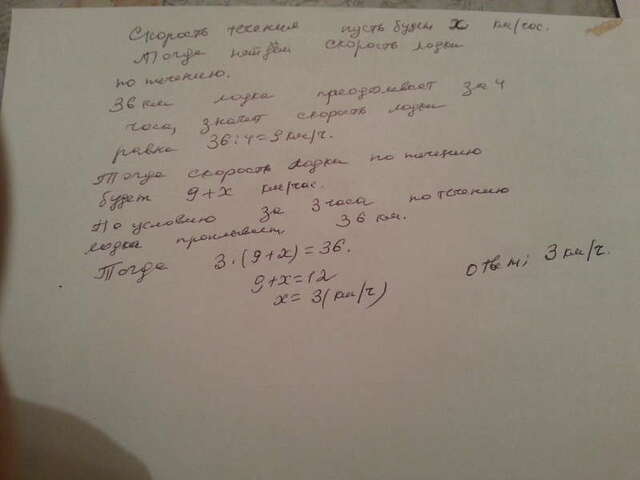 Скорость течения пусть будет x км/час.
Тогда найдём скорость лодки
по течению.
36 км лодка преодолевает за 4
часа, значит скорость лодки
равна 36:4=9 км/ч.
Тогда скорость лодки по течению
будет 9+x км/час.
По условию за 3 часа по течению
лодка проплывает 36 км.
Тогда 3·(9+x)=36.
9+x=12
x=3(км/ч)
Ответ: 3 км/ч.